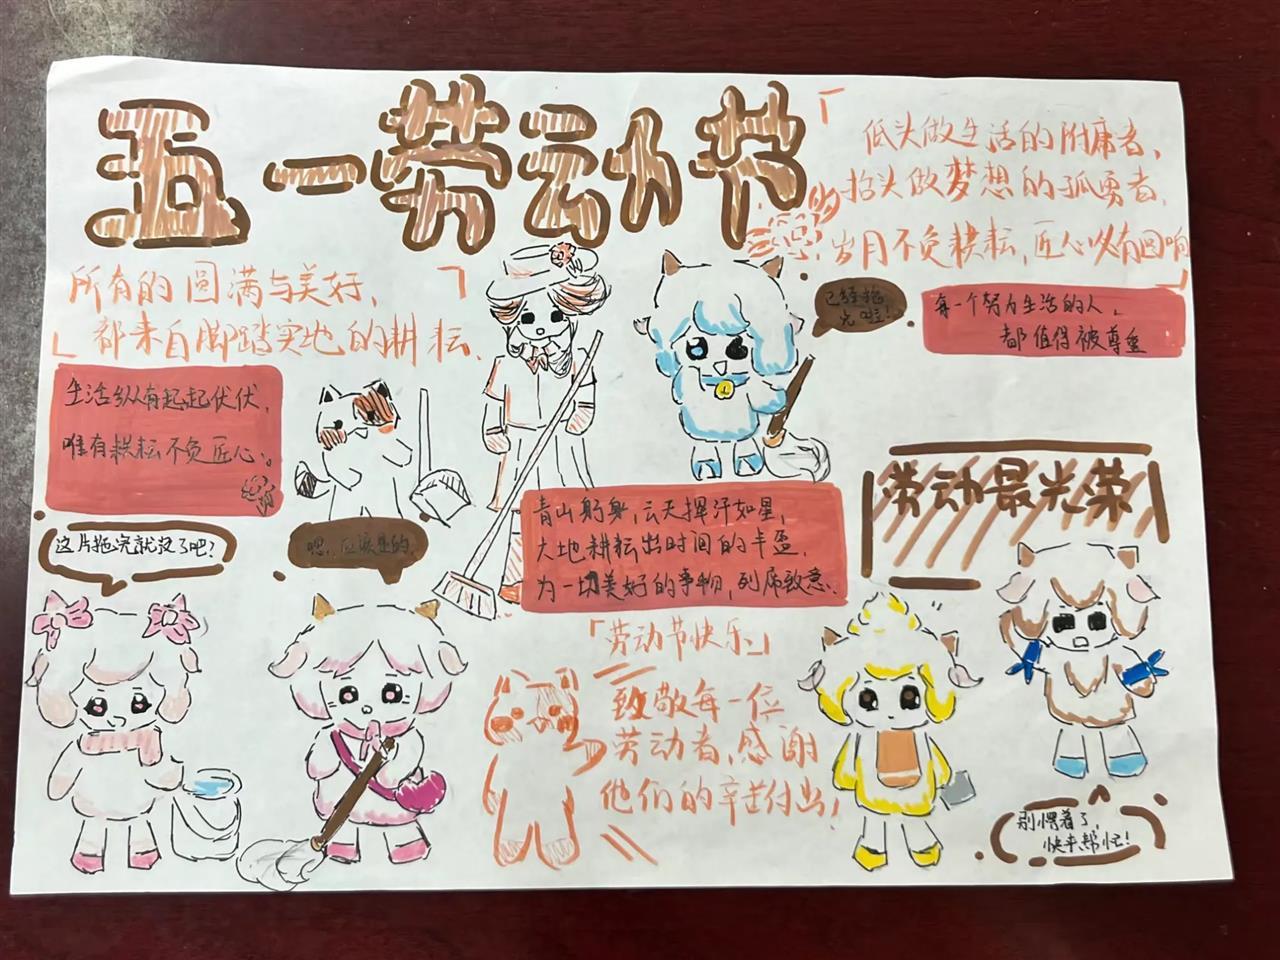 五一劳动节
低头做生活的附庸者,
抬头做梦想的孤勇者,
岁月不负耕耘,匠心必有回响
所有的圆满与美好,
都来自脚踏实地的耕耘、
已经拖
完啦!
每一个努力生活的人,
都值得被尊重
生活纵有起起伏伏,
唯有耕耘不负匠心。
劳动最光荣
青山躬身,云天挥汗如星,
大地耕耘出时间的丰盈,
为一切美好的事物,列席致意.
这片拖完就没了吧?
嗯,应该是的,
「劳动节快乐」
致敬每一位
劳动者,感谢
他们的辛苦付出!
别愣着了,
快来帮忙!